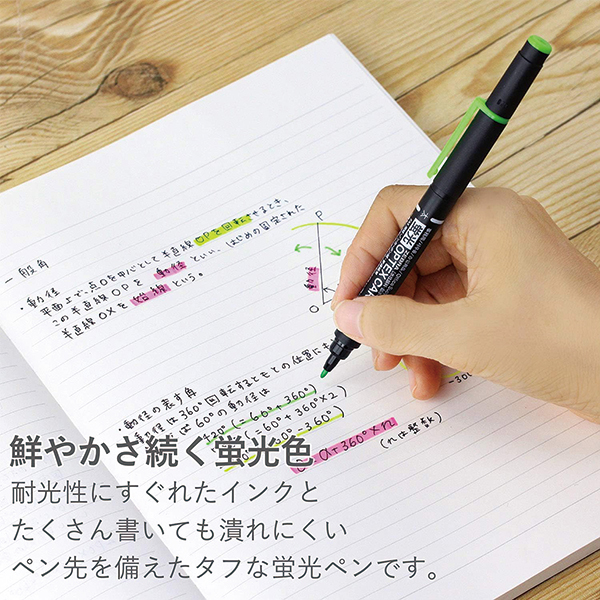 一般角
・動径
平面上で、点Oを中心として半直線OPを回転させるとき、
この半直線OPを動径といい、はじめの固定された
半直線OXを始線という。
P
動径
O
太
蛍光 OPTEX CARE
・動径の表す角
動径は360°回転するともとの位置に
は60°の動径は
420°(=60°+360°)
(=60°+360°×2)
(=60°-360°)
-300
= α+360°×n
(nは整数)
鮮やかさ続く蛍光色
耐光性にすぐれたインクと
たくさん書いても潰れにくい
ペン先を備えたタフな蛍光ペンです。